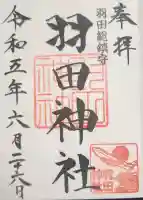 奉拝
羽田総鎮守
羽田神社
令和五年六月二十六日